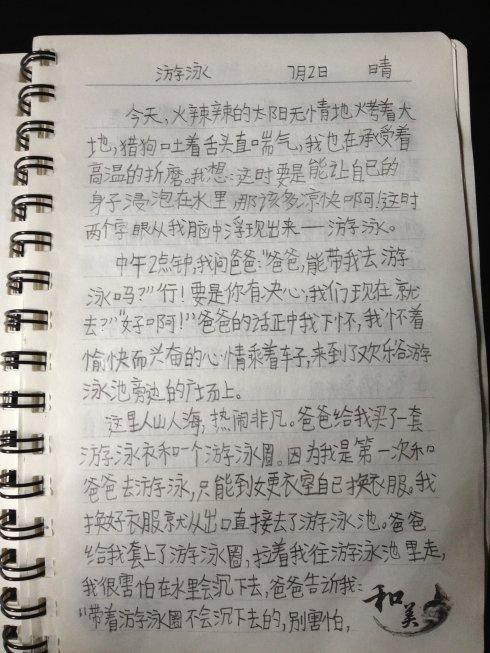 游泳 7月2日 晴
今天，火辣辣的太阳无情地烤着大
地，猎狗吐着舌头直喘气，我也在承受着
高温的折磨。我想：这时要是能让自己的
身子浸泡在水里，那该多凉快啊！这时
两个字眼从我脑中浮现出来——游泳。
中午2点钟，我问爸爸：“爸爸，能带我去游
泳吗？”“行！要是你有决心，我们现在就
去？”“好啊！”爸爸的话正中我下怀，我怀着
愉快而兴奋的心情乘着车子，来到了欢乐谷游
泳池旁边的广场上。
这里人山人海，热闹非凡。爸爸给我买了一套
游泳衣和一个游泳圈。因为我是第一次和
爸爸去游泳，只能到女更衣室自己换衣服。我
换好衣服就从出口直接去了游泳池。爸爸
给我套上了游泳圈，拉着我往游泳池里走，
我很害怕在水里会沉下去，爸爸告诉我：
“带着游泳圈不会沉下去的，别害怕，
和美